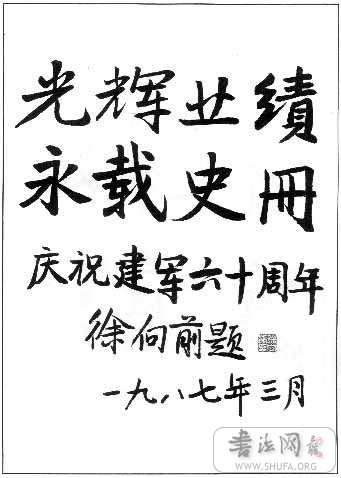 光辉业績
永载史冊
庆祝建军六十周年
徐向前题
一九八七年三月
書法网
WWW.SHUFA.ORG